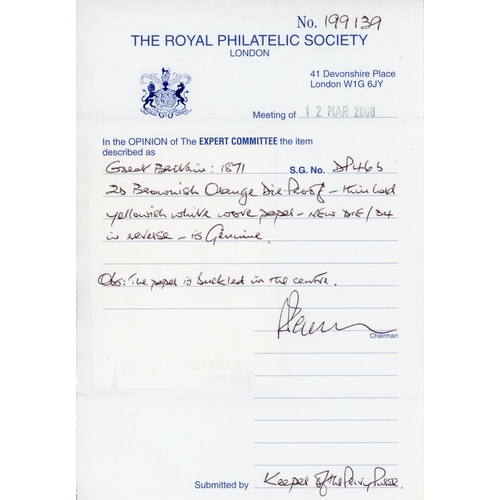 No. 199139
THE ROYAL PHILATELIC SOCIETY
LONDON
41 Devonshire Place
London W1G 6JY
Meeting of 12 MAR 2008
In the OPINION of The EXPERT COMMITTEE the item
described as
Great Britain: 1871 S.G. No. DP46b
2D Brownish Orange Die Proof - thin hard
yellowish white wove paper - NEW DIE/D4
in reverse - is Genuine.
Obs: The paper is buckled in the centre.
Chairman
Submitted by Keeper of the Privy Purse.